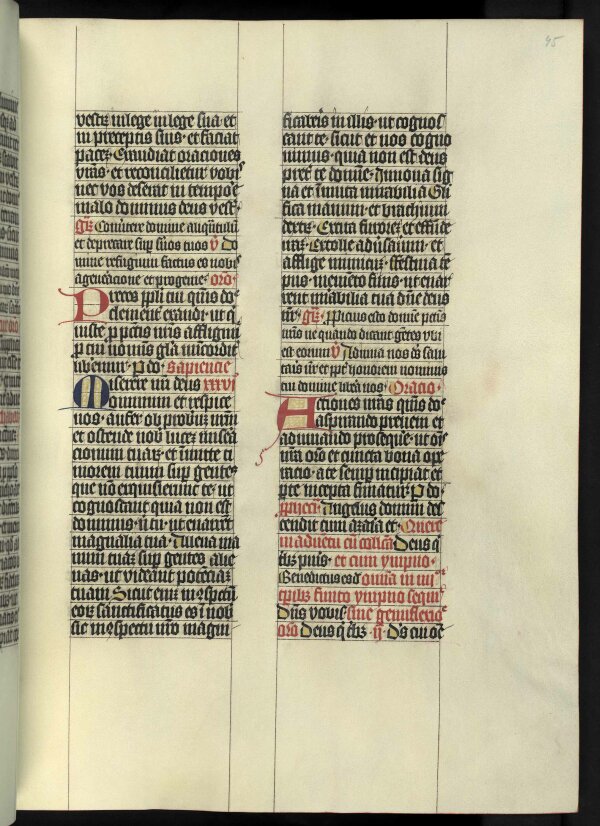 45
vestrum in lege in lege sua et
in preceptis suis · et faciat
pacem · Exaudiat oraciones
vestras · et reconcilietur vobis
nec vos deserat in tempore
malo dominus deus vester ·
gr̃. Convertere domine aliquantulum
et deprecare super servos tuos v̄ Do
mine refugium factus es nobis
a generacione et progenie · oro᷑ ·
Preces populi tui quesumus do
clementer exaudi · ut q
iuste pro peccatis nostris affligimur
pro tui nominis gloria misericorditer
liberemur · P do · sapiencie
Miserere nostri deus xxxvi
omnium et respice
nos · aufer obprobrium nostrum
et ostende nobis lucem misera
cionum tuarum · et inmitte ti
morem tuum super gentes
que non exquisierunt te · ut
cognoscant quia non est
dominus nisi tu · ut enarrent
magnalia tua · Alleva ma
num tuam super gentes alie
nas · ut videant potenciam
tuam · Sicut enim in conspectu
eorum sanctificatus es in nobis
sic in conspectu nostro magni
ficaberis in illis · ut cognos
cant te · sicut et nos cogno
vimus · quia non est deus
preter te domine · Innova sig
na et inmuta mirabilia Glo
rifica manum et brachium
dextrum · Excita furorem et effunde
iram · Extolle adversarium et
afflige inimicum · festina tem
pus · memento finis · ut enar
rent mirabilia tua domine deus
noster · gr̃. Propicius esto domine peccatis
nostris ne quando dicant gentes ubi
est deus eorum v̄ Adiuva nos deus salu
taris noster et propter honorem nominis
tui domine libera nos · Oracio ·
Acciones nostras quesumus do
aspirando preveni et
adiuvando prosequere · ut omnis
nostra oracio et cuncta bona ope
racio · a te semper incipiat et
per te incepta finiatur · P do ·
secundum Angelus domini des
cendit cum azaria et · Quere
in adventu cum collecta Deus q
tribus pueris · et cum ympno ·
Benedictus es domine omnia in iiii
temporibus finito ympno sequitur
Dominus vobis sine genuflexione
oro᷑ Deus q tribus · ii · Ds cui omne